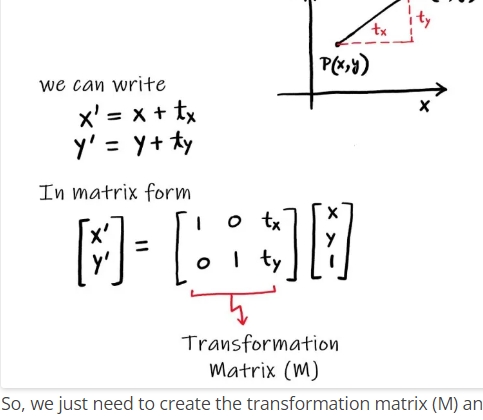 ty
tx
P(x,y)
x
we can write
x' = x + tx
y' = y + ty
In matrix form
[x' y'] = [1 0 tx 0 1 ty] [x y 1]
Transformation
Matrix (M)
So, we just need to create the transformation matrix (M) an